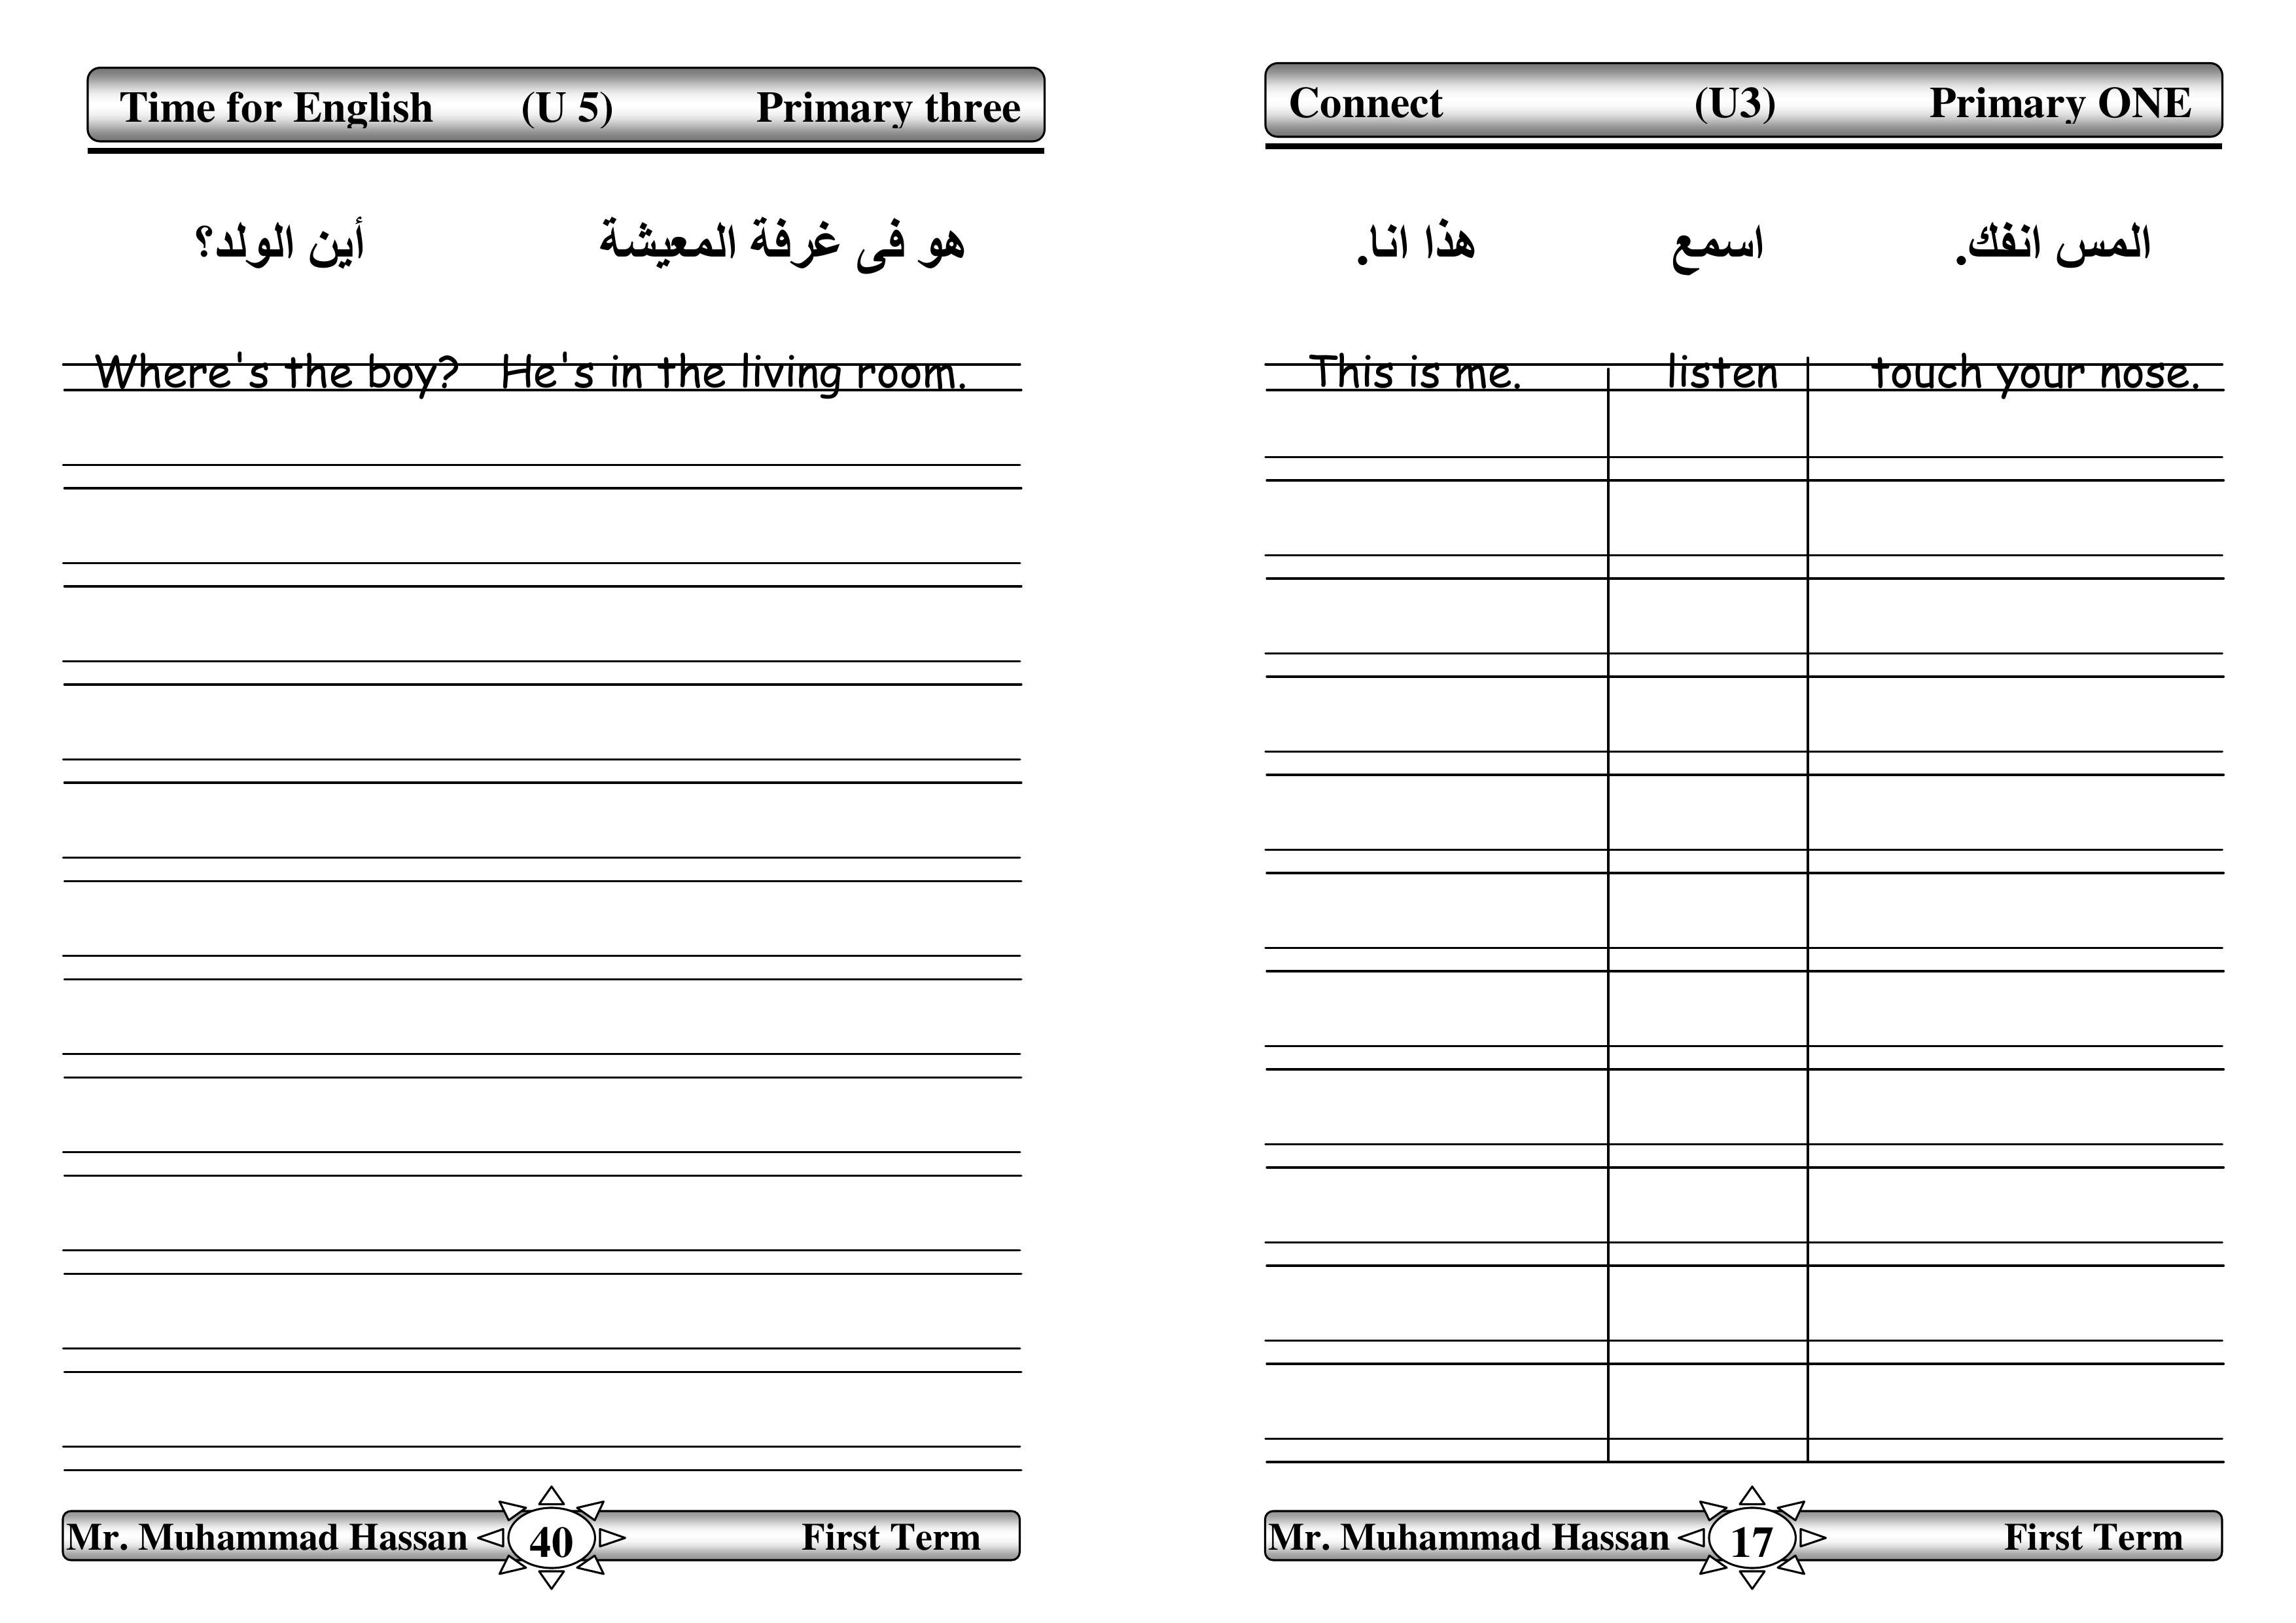 Time for English (U 5) Primary three
أين الولد؟ هو فى غرفة المعيشة
Where's the boy? He's in the living room.
Mr. Muhammad Hassan 40 First Term
Connect (U3) Primary ONE
هذا انا. اسمع المس انفك.
This is me. listen touch your nose.
Mr. Muhammad Hassan 17 First Term